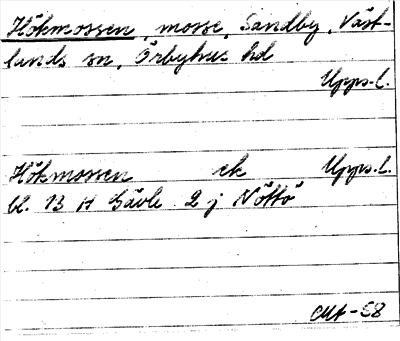 Hökmossen, mosse, Sandby, Väst-
lands sn, Örbyhus hd
Upps.l.
Hökmossen ek Upps.l.
bl. 13 H Gävle 2 j Nöttö
-58